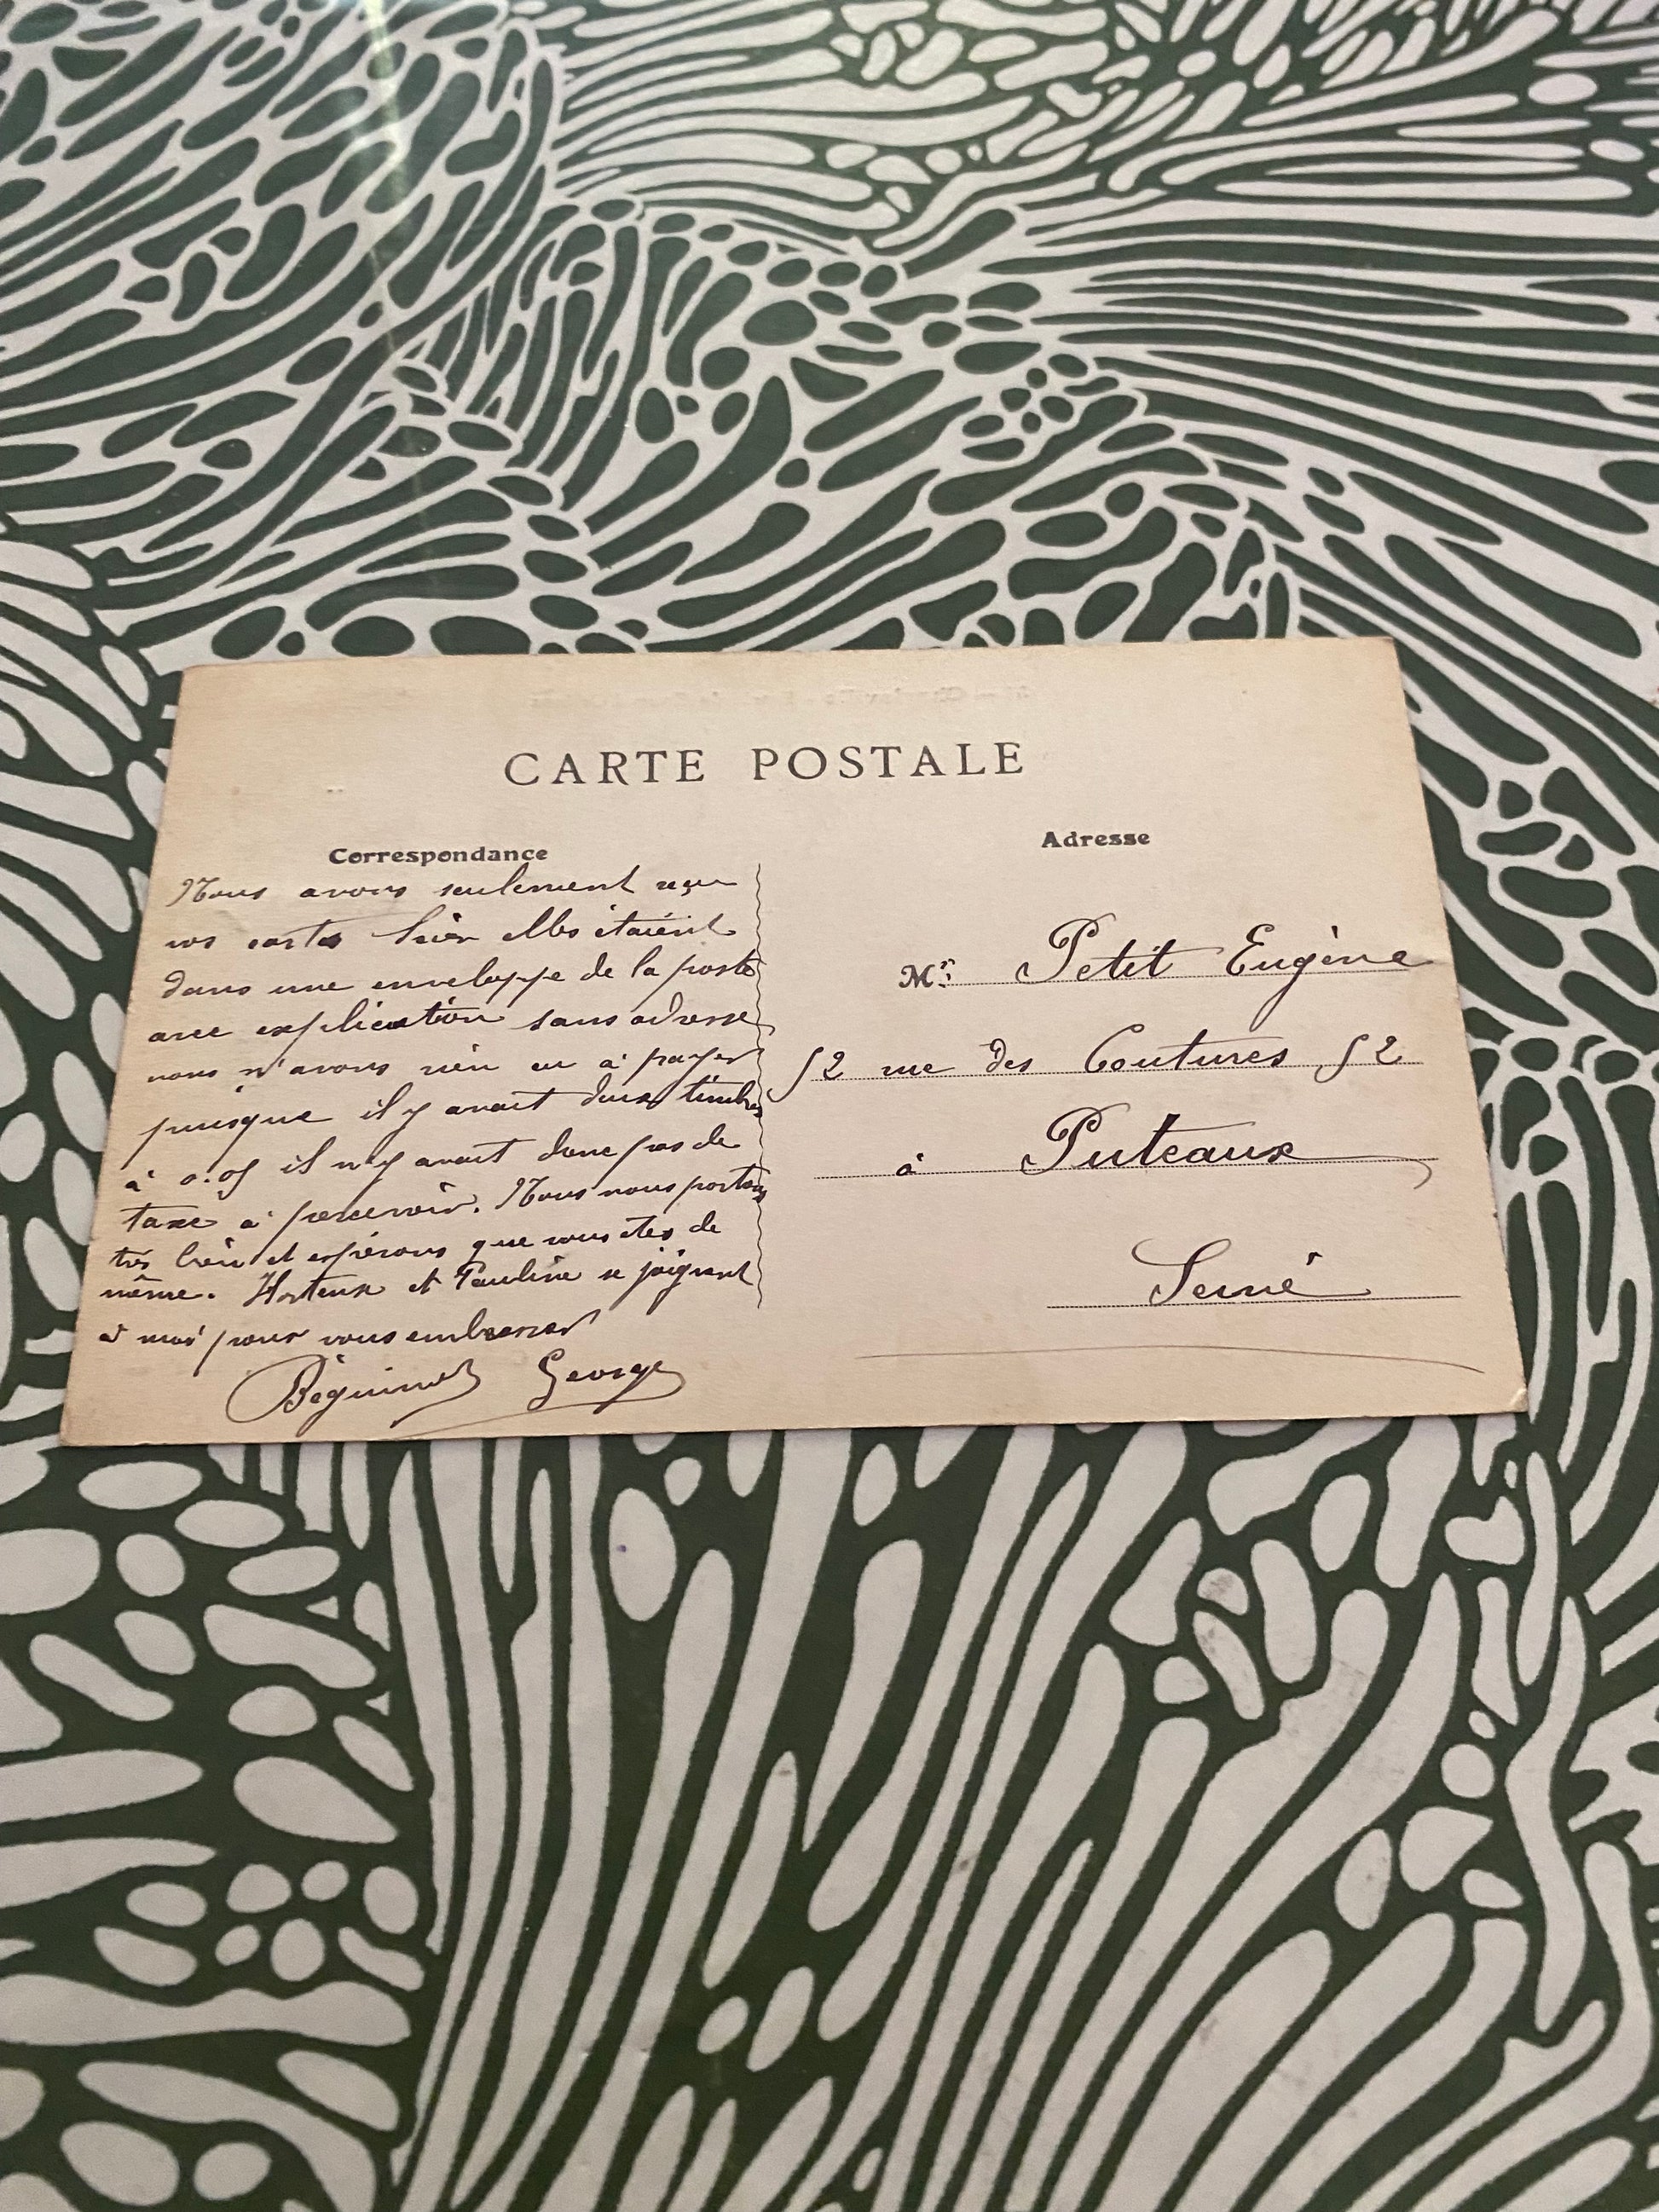 CARTE POSTALE
Correspondance
Nous avons seulement reçu
vos cartes hier elles étaient
dans une enveloppe de la poste
avec explication sans adresse
nous n'avons rien eu à payer
puisque il y avait deux timbres
à 0.05 il n'y avait donc pas de
taxe à percevoir. Nous nous portons
très bien et espérons que vous êtes de
même. Hortense et Pauline se joignent
à moi pour vous embrasser
Béguinot George
Adresse
Mr. Petit Eugène
52 rue des Coutures 52
à Puteaux
Seine